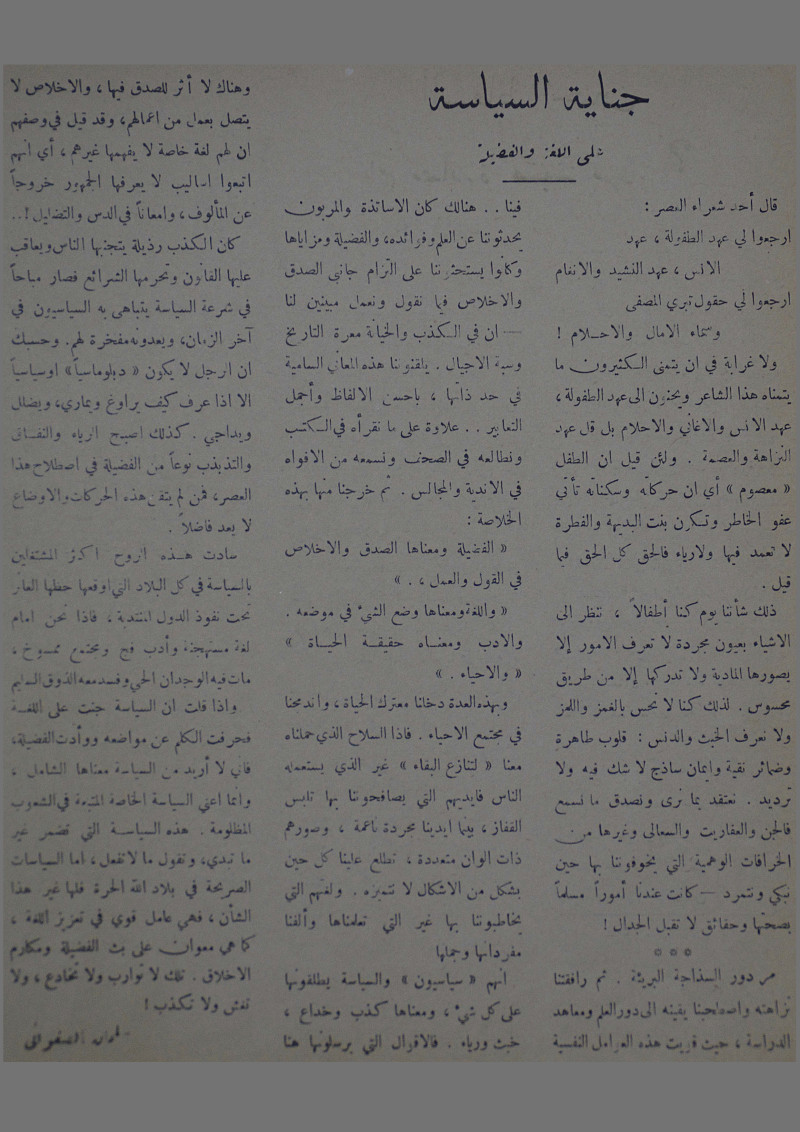 جناية السياسة
على اللغة والفضيلة
قال أحد شعراء العصر :
ارجعوا لي عهد الطفولة ، عهد
الانس ، عهد النشيد والانغام
ارجعوا لي حقول تبري المصفى
وسماء الامال والاحلام !
ولا غرابة في ان يتمنى الكثيرون ما
يتمناه هذا الشاعر ويحنون الى عهد الطفولة ،
عهد الانس والاغاني والاحلام بل قل عهد
النزاهة والعصمة . ولئن قيل ان الطفل
« معصوم » أي ان حركاته وسكناته تأتي
عفو الخاطر وتكون بنت البديهة والفطرة
لا تعمد فيها ولارياء فالحق كل الحق فيما
قيل .
ذلك شأننا يوم كنا أطفالاً ، ننظر الى
الاشياء بعيون مجردة لا تعرف الامور إلا
بصورها المادية ولا تدركها إلا من طريق
محسوس . لذلك كنا لا نحس بالغمز واللمز
ولا نعرف الخبث والدنس : قلوب طاهرة
وضمائر نقية وايمان ساذج لا شك فيه ولا
ترديد . نعتقد بما نرى ونصدق ما نسمع
فالجن والعفاريت والسعالى وغيرها من
الخرافات الوهمية التي يخوفوننا بها حين
نبكي ونتمرد — كانت عندنا أموراً مسلماً
بصحتها وحقائق لا تقبل الجدال !
° ° °
مر دور السذاجة البريئة . ثم رافقتنا
نزاهته واصطحبنا يقينه الى دور العلم ومعاهد
الدراسة ، حيث قويت هذه العوامل النفسية
فينا . . هنالك كان الاساتذة والمربون
يحدثوننا عن العلم وفوائده، والفضيلة ومزاياها
وكانوا يستحثوننا على التزام جانبي الصدق
والاخلاص فيما نقول ونعمل مبينين لنا
— ان في الكذب والخيانة معرة التاريخ
وسبة الاجيال . يلقنوننا هذه المعاني السامية
في حد ذاتها ، باحسن الالفاظ وأجمل
التعابير . . علاوة على ما نقرأه في الكتب
ونطالعه في الصحف ونسمعه من الافواه
في الاندية والمجالس . ثم خرجنا منها بهذه
الخلاصة :
« الفضيلة ومعناها الصدق والاخلاص
في القول والعمل ، . »
« واللغة ومعناها وضع الشيء في موضعه .
والادب ومعناه حقيقة الحياة »
« والاحياء . »
وبهذه العدة دخلنا معترك الحياة ، واندمجنا
في مجتمع الاحياء . فاذا السلاح الذي حملناه
معنا « لتنازع البقاء » غير الذي يستعمله
الناس فايديهم التي يصافحوننا بها تلبس
القفاز ، بينما ايدينا مجردة ناعمة ، وصورهم
ذات الوان متعددة ، تطلع علينا كل حين
بشكل من الاشكال لا نتميزه . ولغتهم التي
يخاطبوننا بها غير التي تعلمناها وألفنا
مفرداتها وجملها
انهم « سياسيون » والسياسة يطلقونها
على كل شيء ، ومعناها كذب وخداع ،
خبث ورياء . فالاقوال التي يرسلونها هنا
وهناك لا أثر للصدق فيها ، والاخلاص لا
يتصل بعمل من اعمالهم، وقد قيل في وصفهم
ان لهم لغة خاصة لا يفهمها غيرهم ، أي انهم
اتبعوا اساليب لا يعرفها الجمهور خروجاً
عن المألوف ، وامعاناً في الدس والتضليل !..
كان الكذب رذيلة يتجنبها الناس ويعاقب
عليها القانون وتحرمها الشرائع فصار مباحاً
في شرعة السياسة يتباهى به السياسيون في
آخر الزمان، ويعدونه مفخرة لهم. وحسبك
ان الرجل لا يكون « دبلوماسياً » او سياسياً
الا اذا عرف كيف يراوغ ويماري، ويضلل
ويداجي . كذلك اصبح الرياء والنفاق
والتذبذب نوعاً من الفضيلة في اصطلاح هذا
العصر، فمن لم يتقن هذه الحركات والاوضاع
لا يعد فاضلاً .
سادت هذه الروح اكثر المشتغلين
بالسياسة في كل البلاد التي اوقعها حظها العاثر
تحت نفوذ الدول المنتدبة ، فاذا نحن امام
لغة مستهجنة وأدب فج ومجتمع ممسوخ ،
مات فيه الوجدان الحي وفسد معه الذوق السليم
واذا قلت ان السياسة جنت على اللغة
فحرفت الكلم عن مواضعه ووأدت الفضيلة،
فاني لا أريد من السياسة معناها الشامل ،
وانما اعني السياسة الخاصة المتبعة في الشعوب
المظلومة . هذه السياسة التي تضمر غير
ما تبدي، وتقول ما لا تفعل ، اما السياسات
الصريحة في بلاد الله الحرة فلها غير هذا
الشأن ، فهي عامل قوي في تعزيز اللغة ،
كما هي معوان على بث الفضيلة ومكارم
الاخلاق . تلك لا توارب ولا تخادع ، ولا
تغش ولا تكذب !
الصفواني